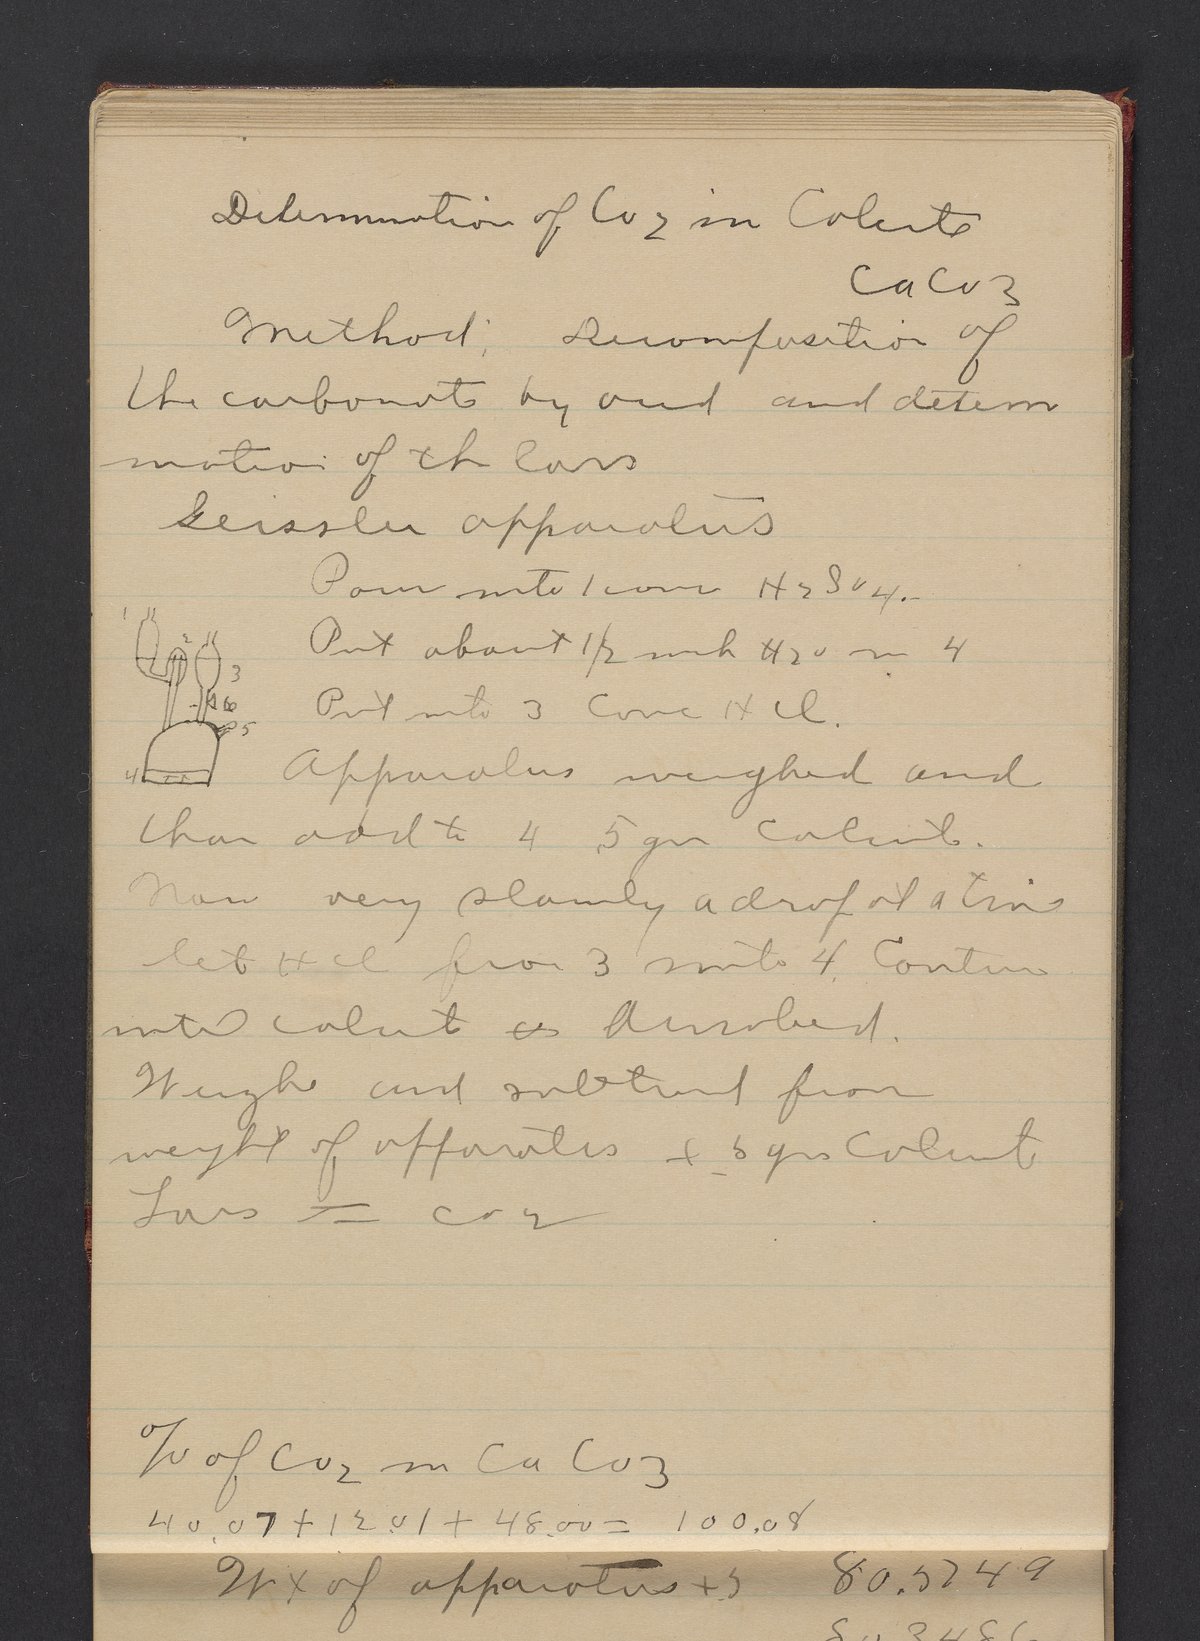 Determination of CO2 in Calcite
CaCO3
Method; Decomposition of
the carbonate by acid and determi
nation of the loss
Geissler apparatus
Pour into 1 conc H2SO4.
Put about 1/2 inch H2O in 4
Put into 3 conc HCl.
Apparatus weighed and
then add to 4 .5 gm calcite.
Now very slowly a drop at a time
let HCl from 3 into 4. Continue
until calcite is dissolved.
Weigh and subtract from
weight of apparatus + .5 gms Calcite
Loss = CO2
1 2 3 6 5 4
% of CO2 in CaCO3
40.07 + 12.01 + 48.00 = 100.08
Wt of apparatus + .5 80.5749